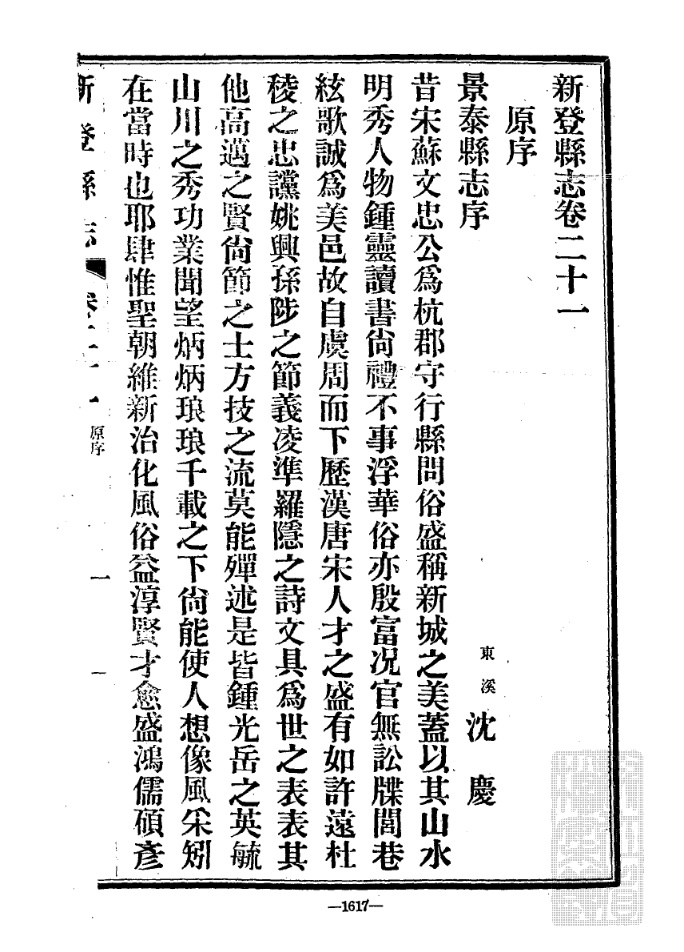 新登縣志卷二十一
原序
景泰縣志序
東溪 沈慶
昔宋蘇文忠公爲杭郡守行縣問俗盛稱新城之美蓋以其山水
明秀人物鍾靈讀書尙禮不事浮華俗亦殷富况官無訟牒閭巷
絃歌誠爲美邑故自虞周而下歷漢唐宋人才之盛有如許遠杜
稜之忠讜姚興孫陟之節義凌準羅隱之詩文具爲世之表表其
他高邁之賢尙節之士方技之流莫能殫述是皆鍾光岳之英毓
山川之秀功業聞望炳炳琅琅千載之下尙能使人想像風采矧
在當時也耶肆惟聖朝維新治化風俗益淳賢才愈盛鴻儒碩彥
新登縣志 卷二十一 原序 一
—1617—